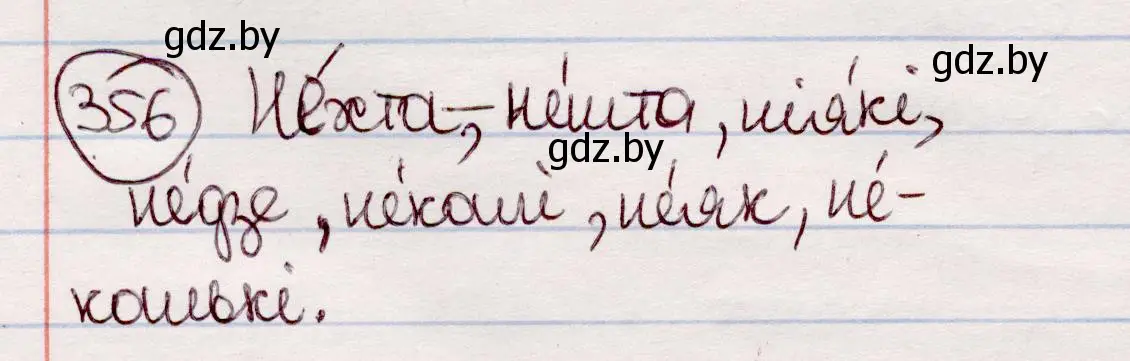 gdz.by
gdz.by
356 Не́хта, не́шта, нія́кі,
gdz.by
не́дзе, не́калі, не́як, не́-
калькі.